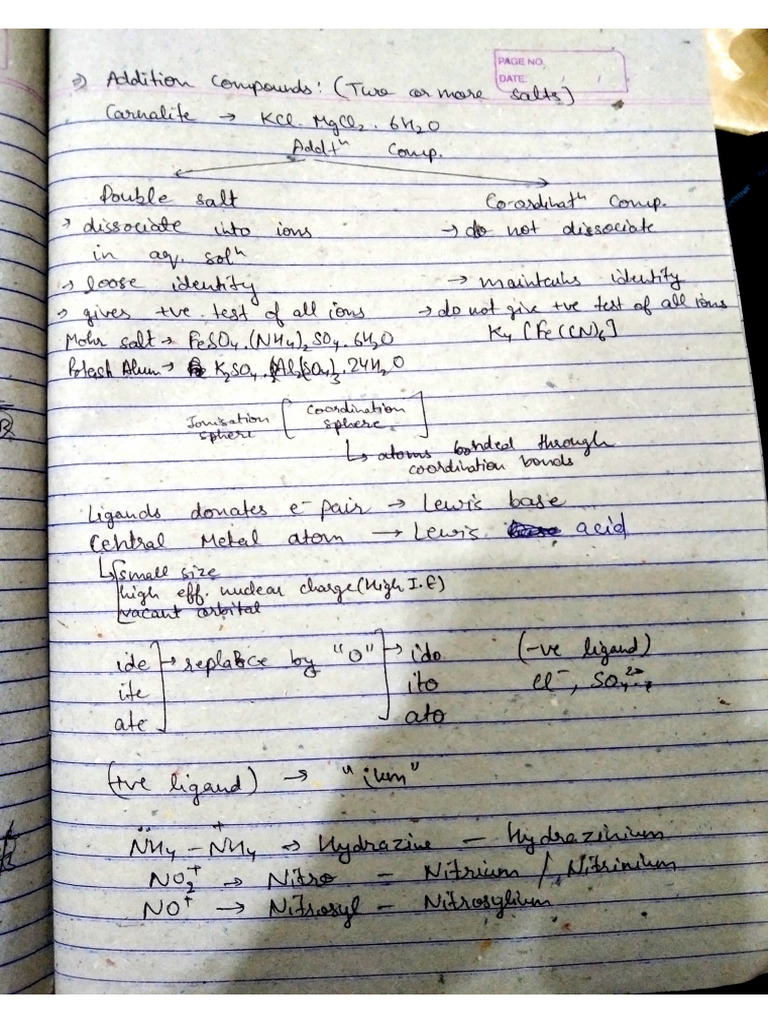 PAGE NO.
DATE: / /
⇒ Addition Compounds: (Two or more salts)
Carnalite → KCl. MgCl₂. 6H₂O
Addtⁿ Comp.
Double salt Co-ordinatⁿ Comp.
→ dissociate into ions → do not dissociate
in aq. solⁿ
→ loose identity → maintains identity
→ gives +ve test of all ions → do not give +ve test of all ions
Mohr salt → FeSO₄.(NH₄)₂SO₄.6H₂O K₄[Fe(CN)₆]
Potash Alum → K₂SO₄.Al₂(SO₄)₃.24H₂O
Ionisation [Coordination
sphere sphere.]
↳ atoms bonded through
coordination bonds
Ligands donates e⁻ pair → Lewis base
Central Metal atom → Lewis acid
↳ small size
high eff. nuclear charge (High I.E)
vacant orbital
ide → replace by "O" → ido (-ve ligand)
ite ito Cl⁻, SO₄²⁻
ate ato
(+ve ligand) → "ium"
N̈H₄ - N⁺H₄ → Hydrazine - Hydrazinium
NO₂⁺ → Nitro - Nitrium / Nitrinium
NO⁺ → Nitrosyl - Nitrosylium